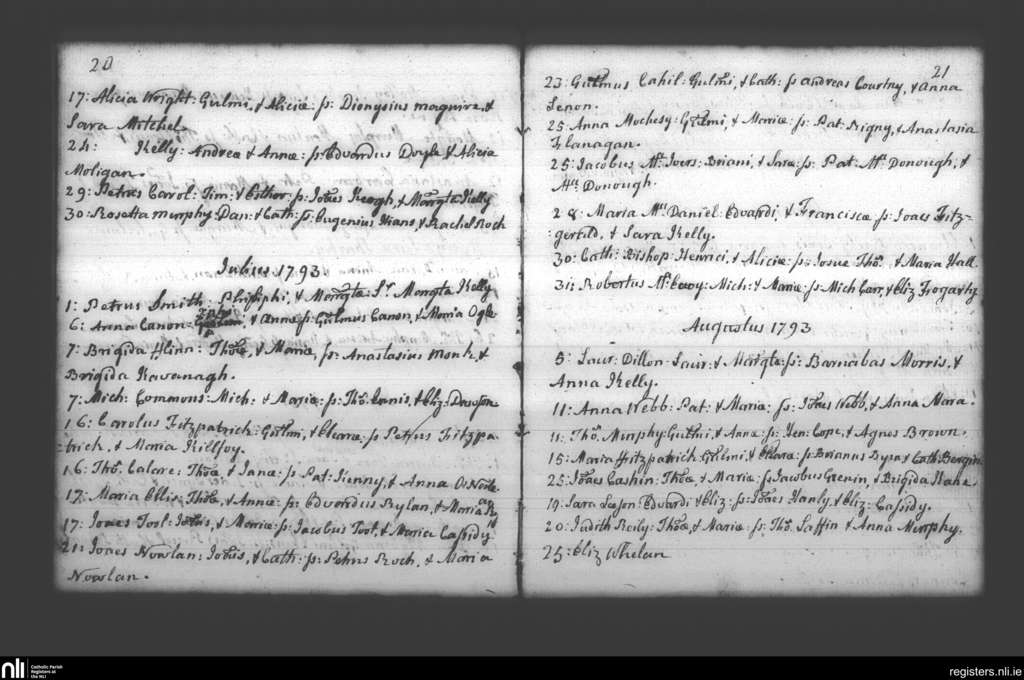 20
17: Alicia Wright: Gulmi, & Aliciæ: ſs: Dionysius maguire, &
Sara Mitchel,
24: Kelly: Andreæ & Annæ: ſs: Edvardus Doyle & Alicia
Moligan.
29: Petrus Carol: Tim: & Esthor: ſs: Johēs Keogh, & Margta Kelly
30: Rosetta murphy Dan: & Cath: ſs: Eugenius Kians, & Rachel Roch
Julius 1793
1: Petrus Smith: Philiphi, & Margtæ: Sr Margta Kelly
6: Canon: & Annæ ſs: Gulmus Canon, & Maria Ogle
7: Brigida Flinn: Thoæ, & Mariæ, ſs: Anastasius Monk &
Brigida Kavanagh.
7: Mich: Commons: Mich: & Mariæ: ſs: Tho: Ennis, & Eliz: Dawson
16: Carolus Fitzpatrick: Gulmi, & Claræ ſs Petrus Fitzpa-
trick, & Maria Killfoy.
16: Tho: Calare: Thoæ, & Janæ: ſs: Pat: Kenny, & Anna
17: Maria Ellis: Thoæ, & Annæ: ſs: Edvardus Rylan, & Maria
17: Joaes Tool: Johis, & Mariæ: ſs: Jacobus Tool, & Maria Cassidy
21: Joaes Nowlan: Johis, & Cath: ſs: Petrus Roch, & Maria
Nowlan.
21
23: Gulmus Cahil: Gulmi, & Cath: ſs Andreas Courtny, & Anna
Lenon.
25: Anna Mochesy: Gulmi, & Mariæ: ſs: Pat: Bigny, & Anastasia
Flanagan.
25: Jacobus Mc Ivers: Briani, & Saræ: ſs: Pat: Mc Donough, &
Mc Donough.
28: Maria Mc Daniel: Edvardi, & Franciscæ ſs: Joaes Fitz-
-gerald, & Sara Kelly.
30: Cath: Bishop: Henrici, & Aliciæ: ſs: Josue Tho: & Maria Hall
31: Robertus Mc Evoy: Mich: & Mariæ: ſs: Mich Carr, & Eliz Fogarty
Augustus 1793
5: Laur: Dillon: Laur: & Margtæ: ſs: Barnabas Morris, &
Anna Kelly.
11: Anna Webb: Pat: & Mariæ: ſs: Johēs Webb, & Anna Mara.
11: Tho: Murphy: Gulmi, & Annæ: ſs: Hen: Cope, & Agnes Brown.
15: Maria Fitzpatrick: Gulmi, & Claræ: ſs: Brianus Byrn & Cath: Bergin
25: Johēs Cashin: Thoæ, & Mariæ: ſs: Jacobus & Brigida Kane
19: Sara Leeson: Edvardi & Eliz: ſs: Johēs Hanly, & Eliz: Cassidy.
20: Judith Reily: Thoæ, & Mariæ: ſs: Tho: Laffin & Anna Murphy.
25: Eliz Whelan
nli
Catholic Parish
Registers at
the NLI
registers.nli.ie